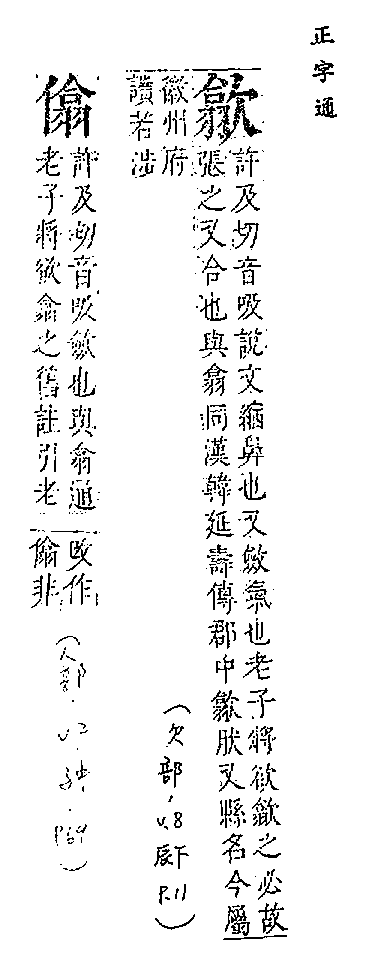 正字通
歙
許及切音吸說文縮鼻也又斂氣也老子將欲歙之必故
張之又合也與翕同漢韓延壽傳郡中歙肰又縣名今屬
徽州府
讀若涉
(欠部, v.8 辰下 P.11)
僋
許及切音吸斂也與翕通
老子將欲翕之舊註引老
改作
僋非